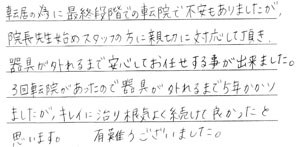 転居の為に最終段階での転院で不安もありましたが、
院長先生始めスタッフの方に親切に対応して頂き、
器具が外れるまで安心してお任せする事が出来ました。
3回転院があったので器具が外れるまで5年かかり
ましたが、キレイに治り根気よく続けて良かったと
思います。 有難うございました。